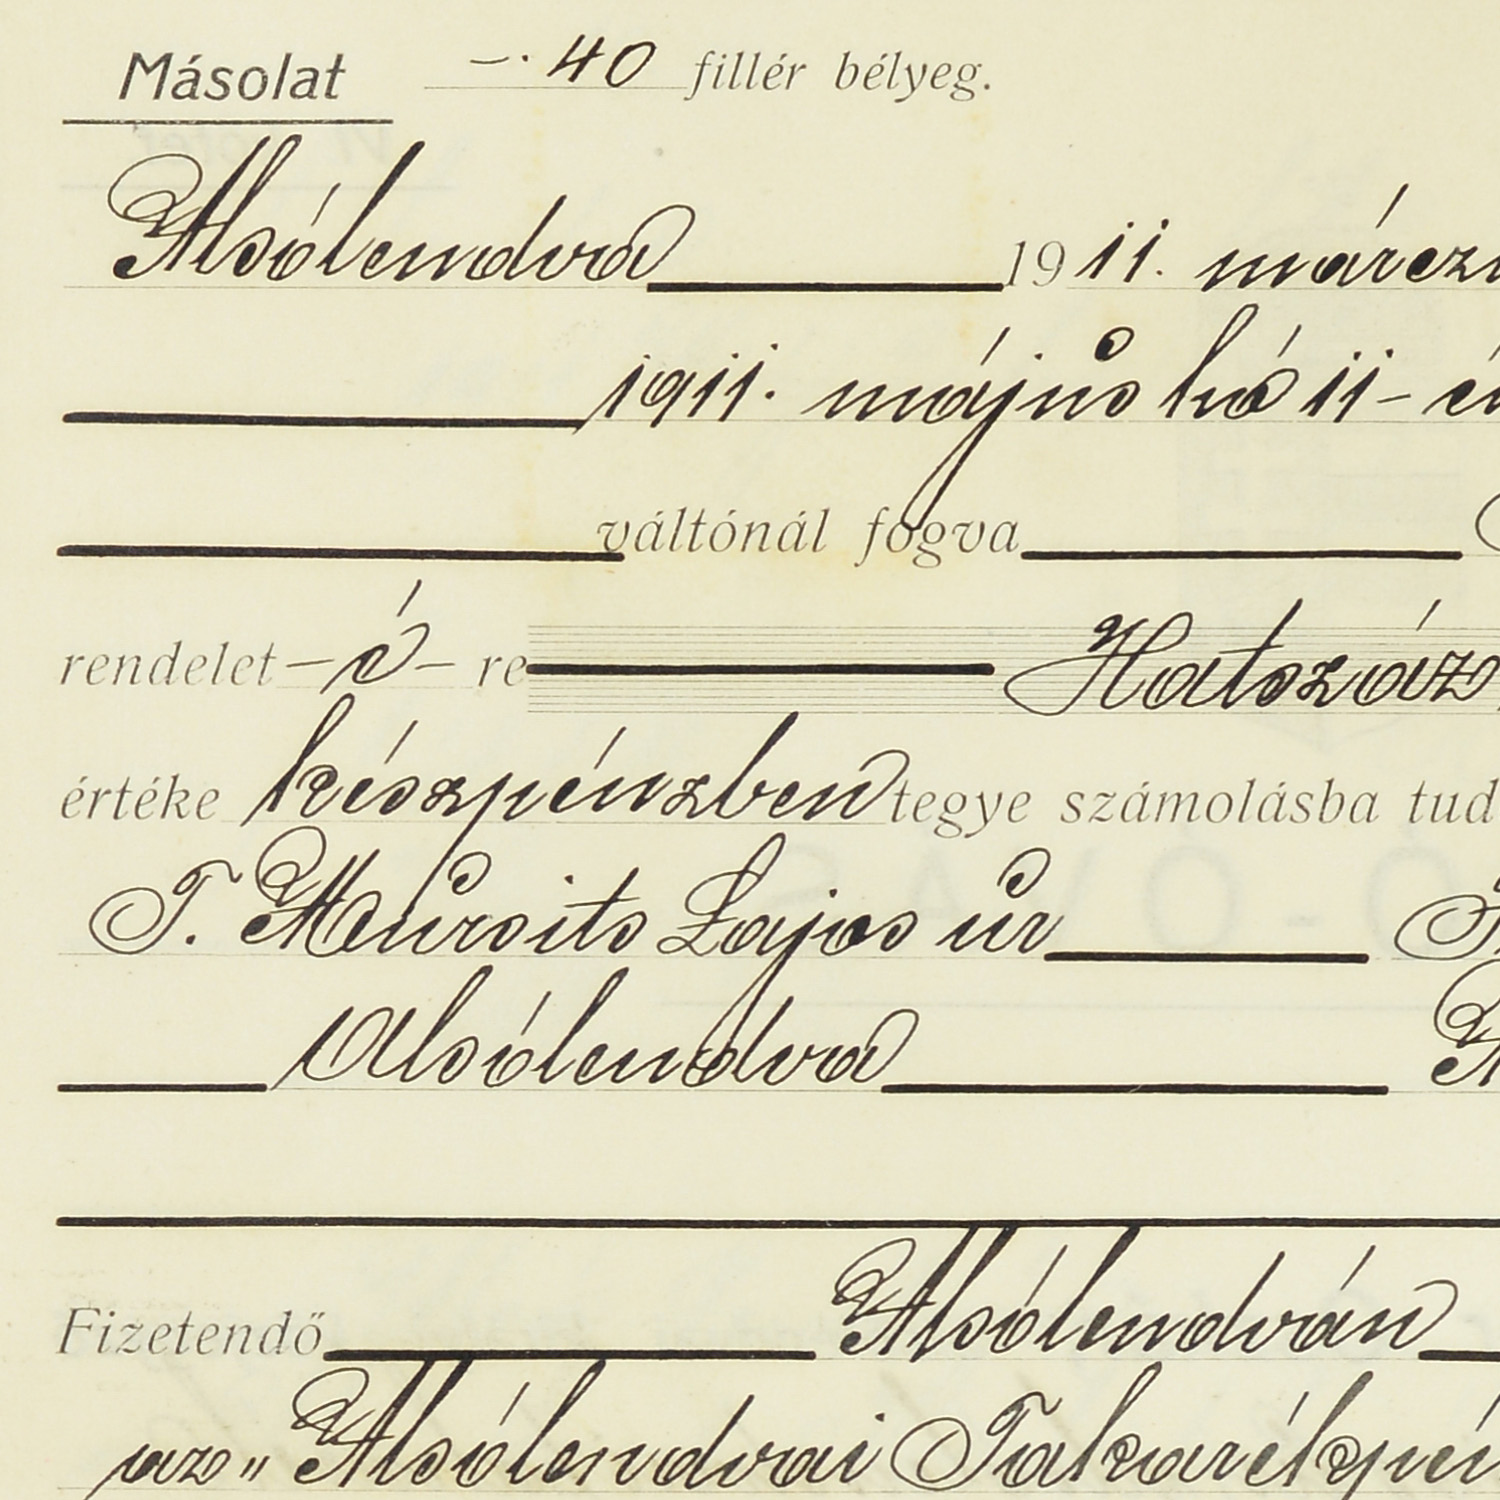 Másolat —.40 fillér bélyeg.
Alsólendva 1911. márczi
1911. május hó 11-én
váltónál fogva
rendelet –é– re Hatszáz
értéke készpénzben tegye számolásba tud
T. Mursits Lajos úr
Alsólendva
Fizetendő Alsólendván
az „Alsólendvai Takarékpén